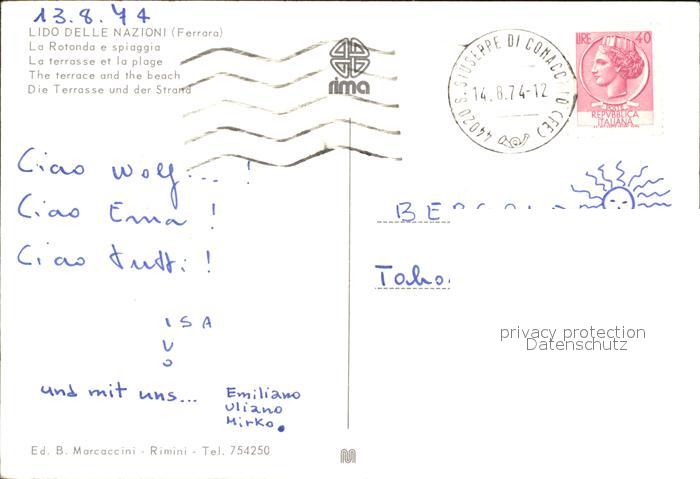 13.8.74
LIDO DELLE NAZIONI (Ferrara)
La Rotonda e spiaggia
La terrasse et la plage
The terrace and the beach
Die Terrasse und der Strand
rima
44020 S. GIUSEPPE DI COMACCHIO (FE)
14.8.74-12
LIRE 40
REPVBBLICA
ITALIANA
Ciao Wolf... !
Ciao Ema !
Ciao tutti !
ISA
V
O
und mit uns...
Emiliano
Uliano
Mirko.
privacy protection
Datenschutz
Ed. B. Marcaccini - Rimini - Tel. 754250